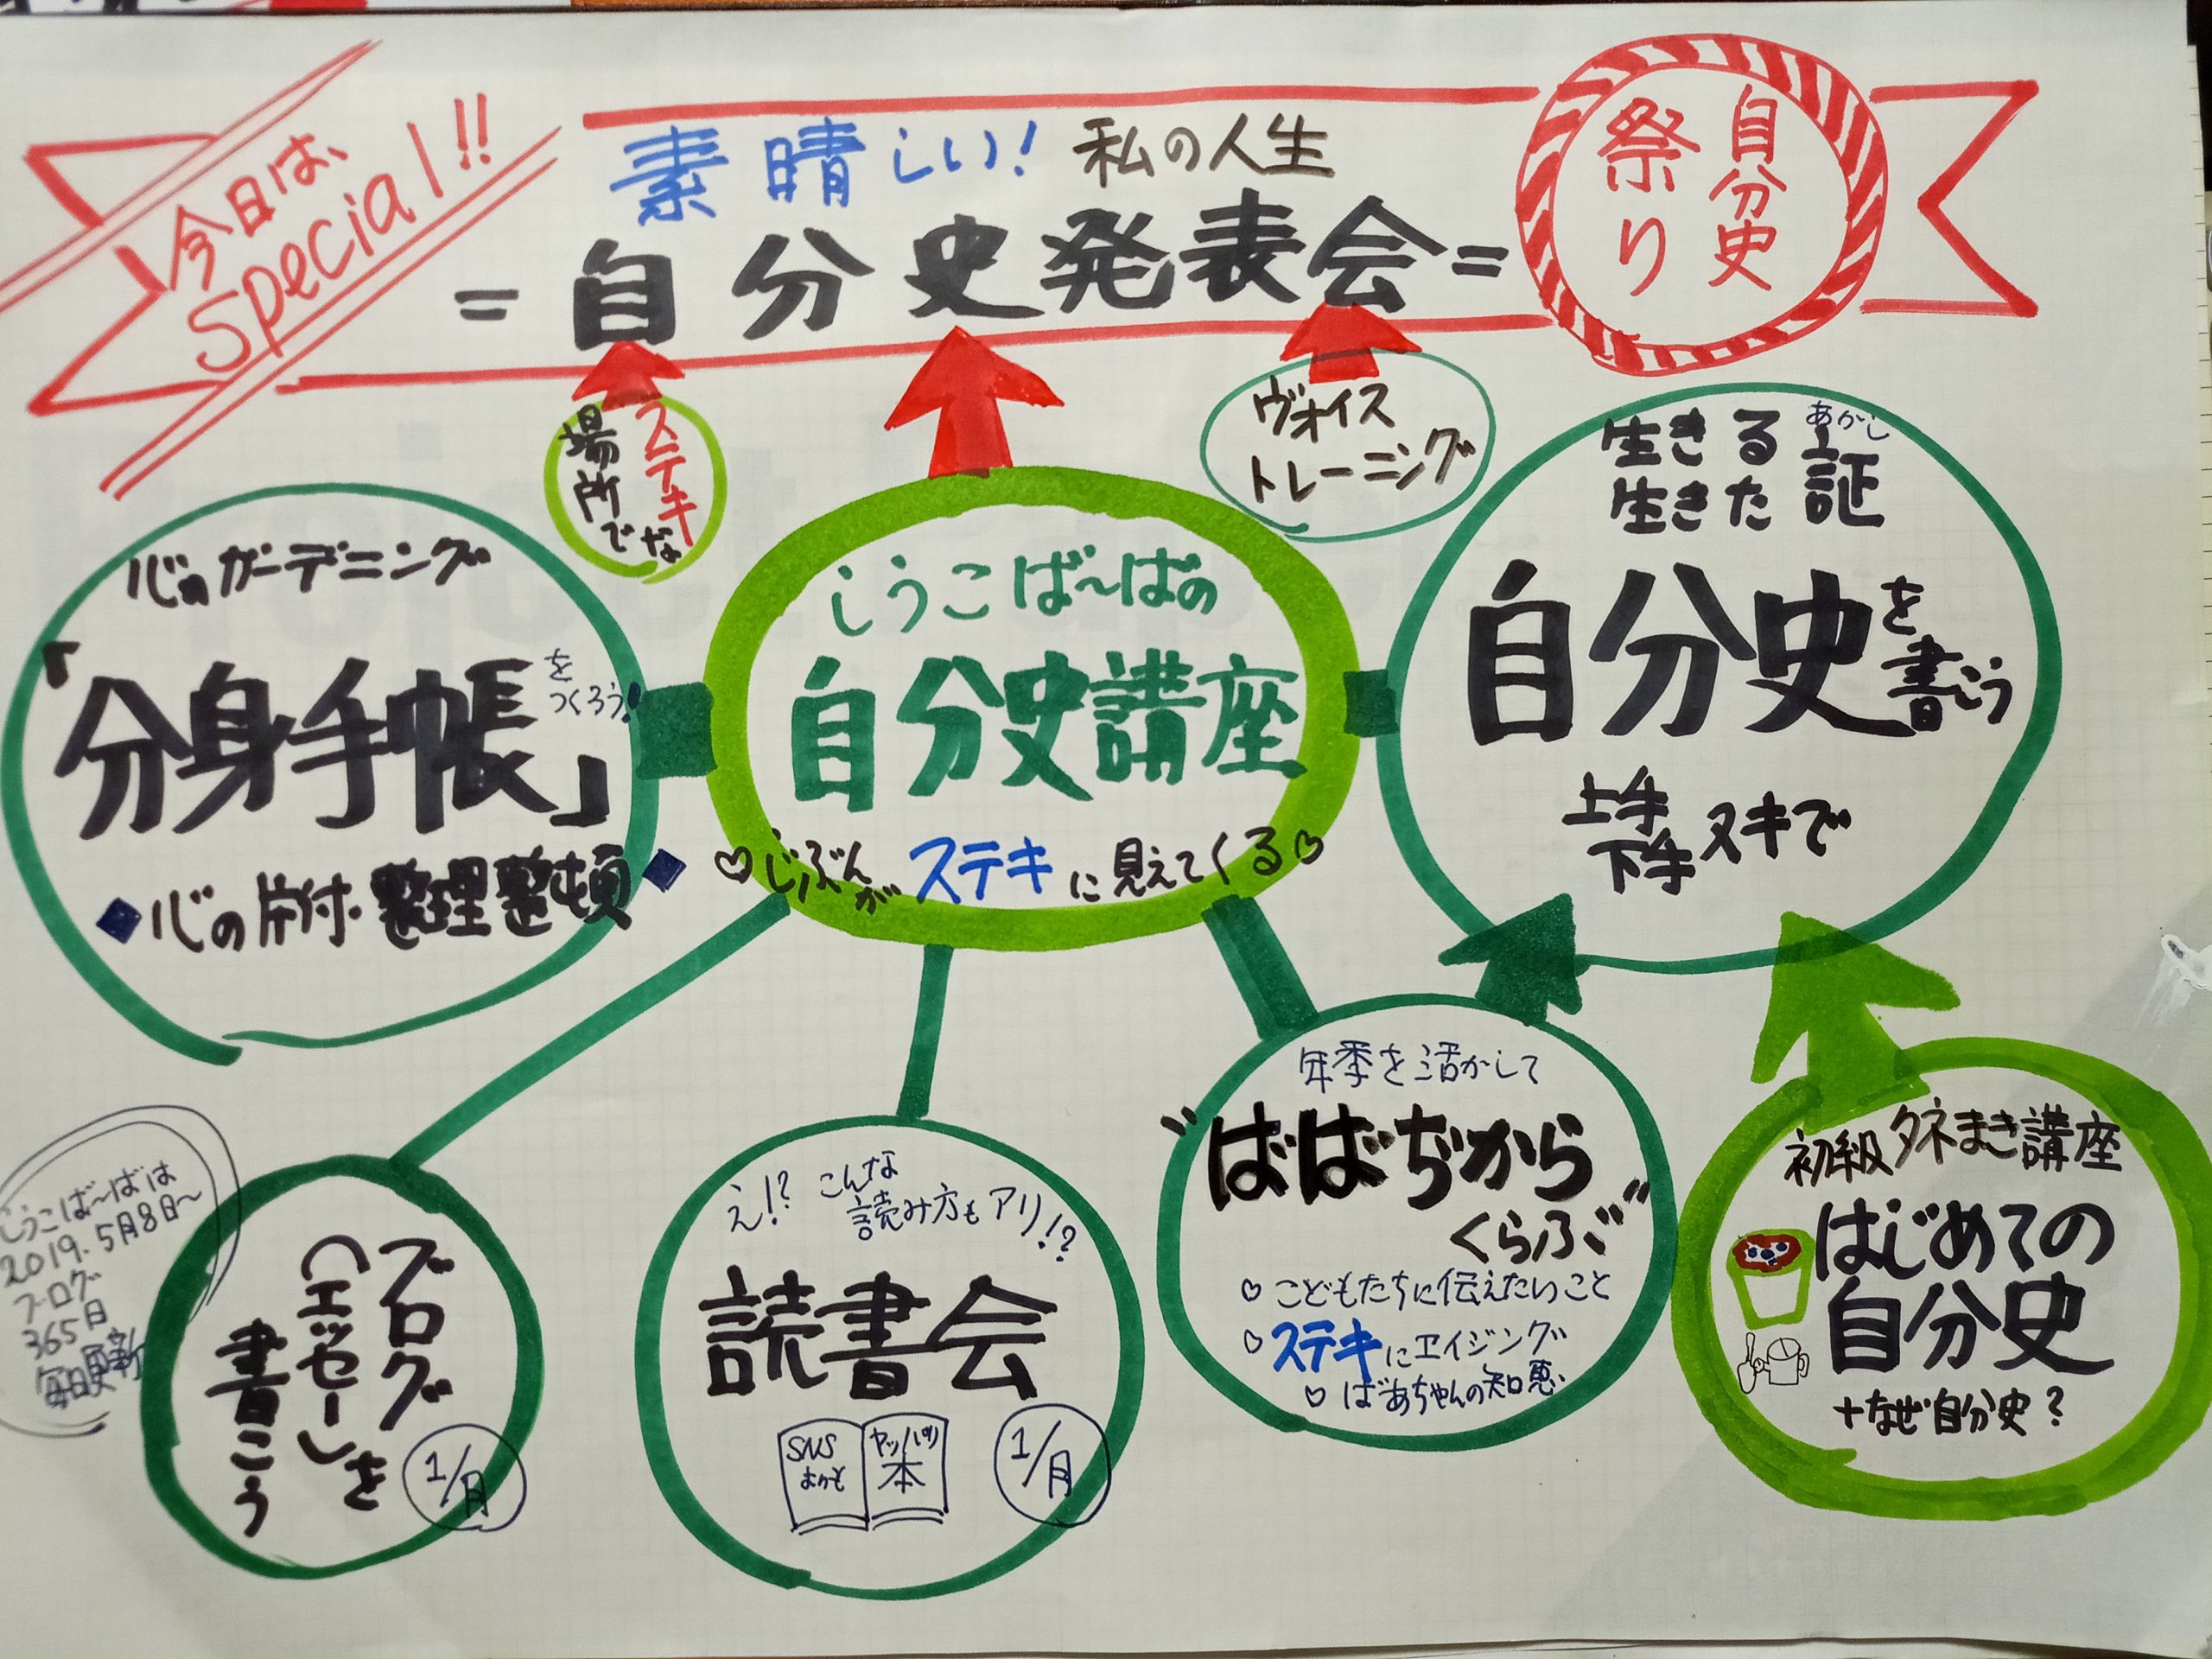 今日は、
Special!!
素晴しい! 私の人生
=自分史発表会=
自分史
祭り
ステキな
場所で
ヴォイス
トレーニング
心のガーデニング
「分身手帳」
を
つくろう!
◆心の片付・整理整頓◆
しうこば〜ばの
自分史講座
♡じぶんがステキに見えてくる♡
あかし
生きる証
生きた
自分史を書こう
上手
下手ヌキで
しうこば〜ばは
2019.5月8日〜
ブログ
365日
毎日更新
ブログ
(エッセー)を
書こう
1/月
え!? こんな
読み方もアリ!?
読書会
SNS
よりも
ヤッパリ
本
1/月
年季を活かして
"ばばぢから
くらぶ"
♡こどもたちに伝えたいこと
♡ステキにエイジング
♡ばあちゃんの知恵
初級タネまき講座
はじめての
自分史
+なぜ自分史?